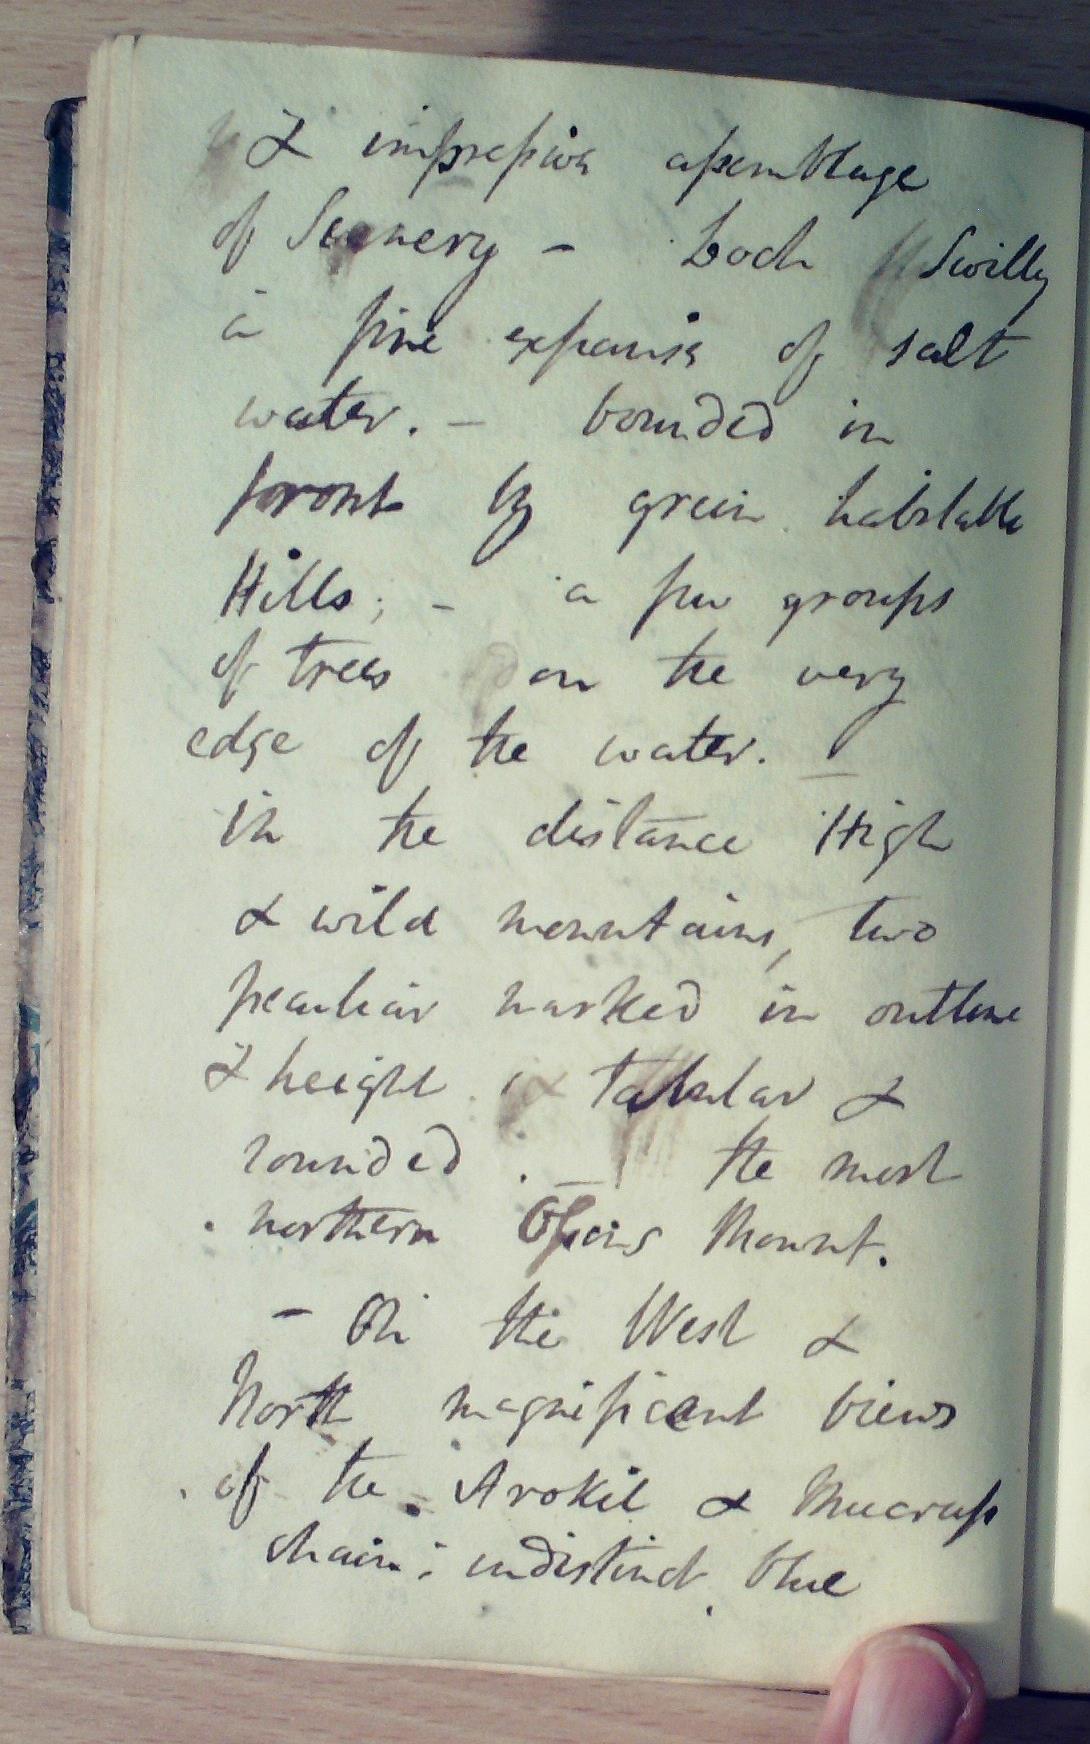 & impressive assemblage
of Scenery - Loch Swilly
a fine expanse of salt
water. - bounded in
front by green habitable
Hills; - a few groups
of trees on the very
edge of the water. -
in the distance High
& wild mountains, two
peculiar marked in outline
& height tabular &
rounded . - the most
northern Mount.
- On the West &
North magnificent views
of the Arokil & Mucruss
chain; indistinct blue